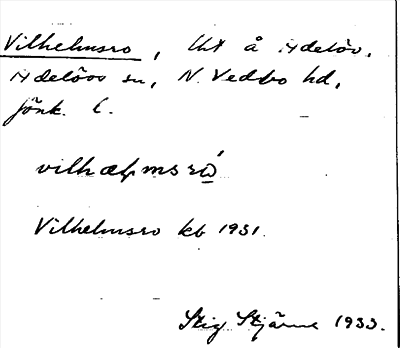 Vilhelmsro, lht å Adelöv,
Adelövs sn, N. Vedbo hd,
Jönk. l.
vilhælmsrώ̲
Vilhelmsro kb 1931.
Stig Stjärne 1933.